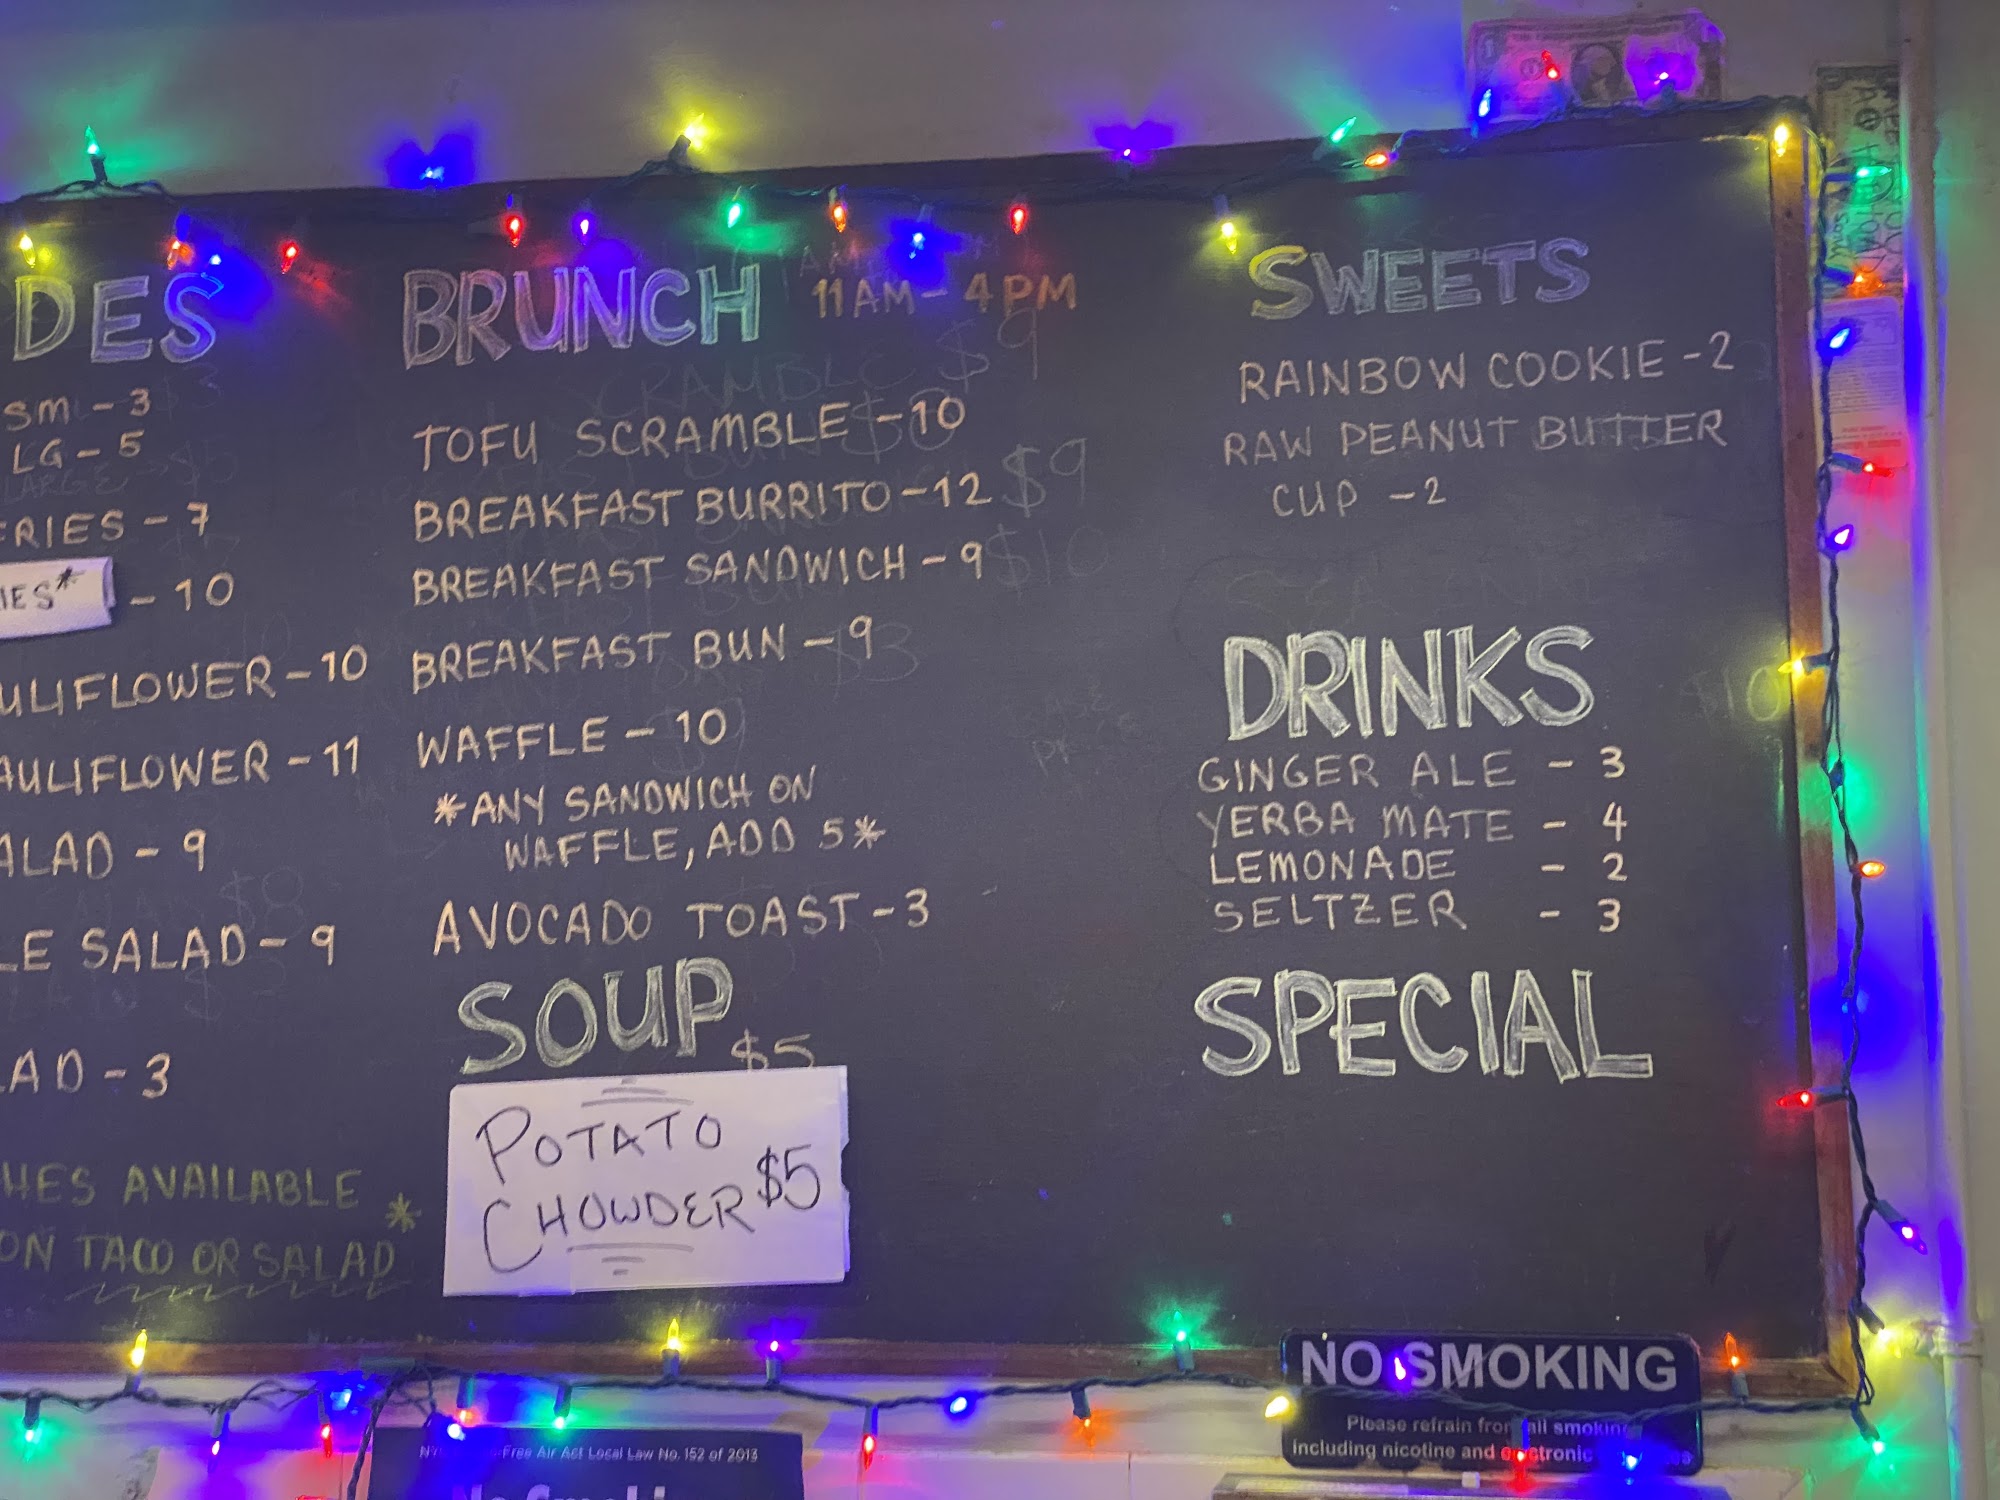 DES
SM - 3
LG - 5
LARGE
FRIES - 7
IES* - 10
ULIFLOWER - 10
AULIFLOWER - 11
ALAD - 9
LE SALAD - 9
AD - 3
HES AVAILABLE
ON TACO OR SALAD *
BRUNCH 11AM - 4PM
SCRAMBLE $9
TOFU SCRAMBLE - 10
BREAKFAST BURRITO - 12 $9
BREAKFAST SANDWICH - 9 $10
BREAKFAST BUN - 9 $3
WAFFLE - 10
*ANY SANDWICH ON
WAFFLE, ADD 5*
AVOCADO TOAST - 3
SOUP
$5
POTATO
CHOWDER $5
SWEETS
RAINBOW COOKIE - 2
RAW PEANUT BUTTER
CUP - 2
DRINKS
$10
GINGER ALE - 3
YERBA MATE - 4
LEMONADE - 2
SELTZER - 3
SPECIAL
NO SMOKING
Please refrain from all smoking
including nicotine and electronic
Free Air Act Local Law No. 152 of 2013